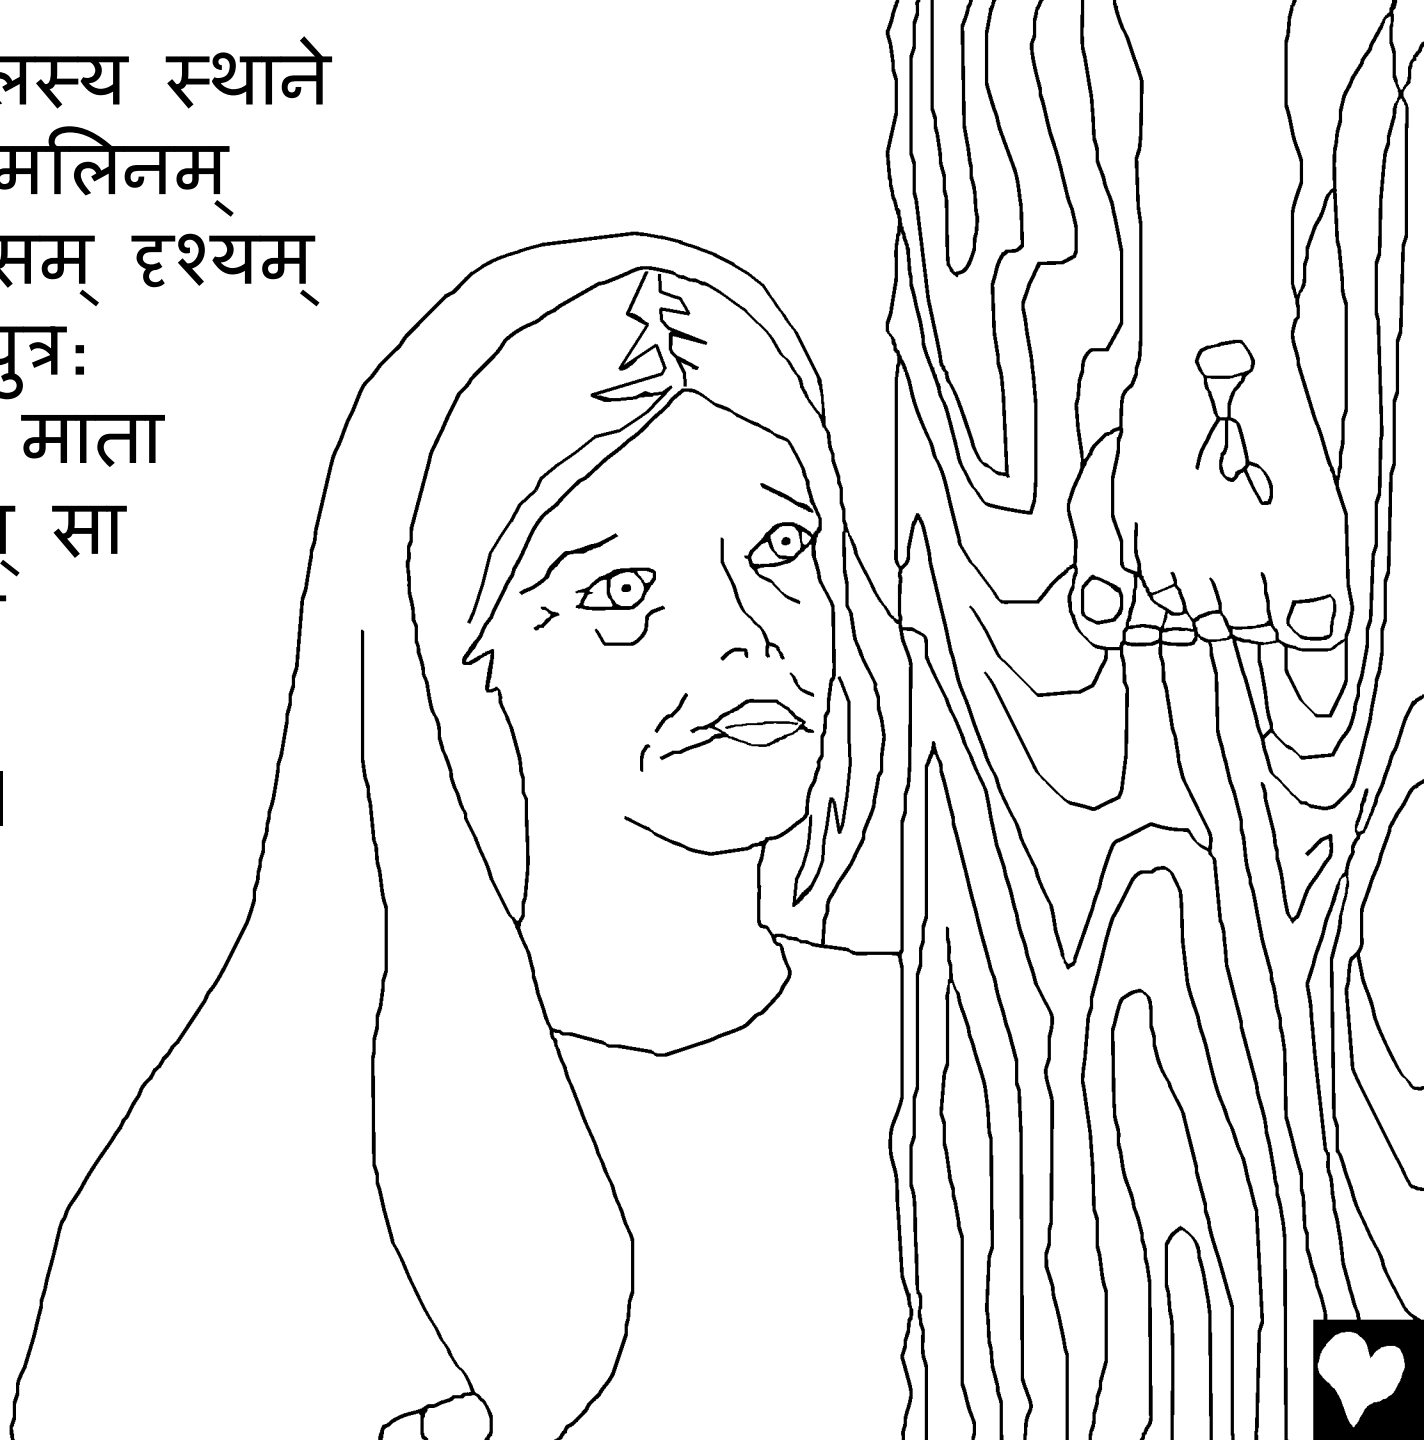 लस्य स्थाने
मलिनम्
सम् दृश्यम्
पुत्रः
माता
सा